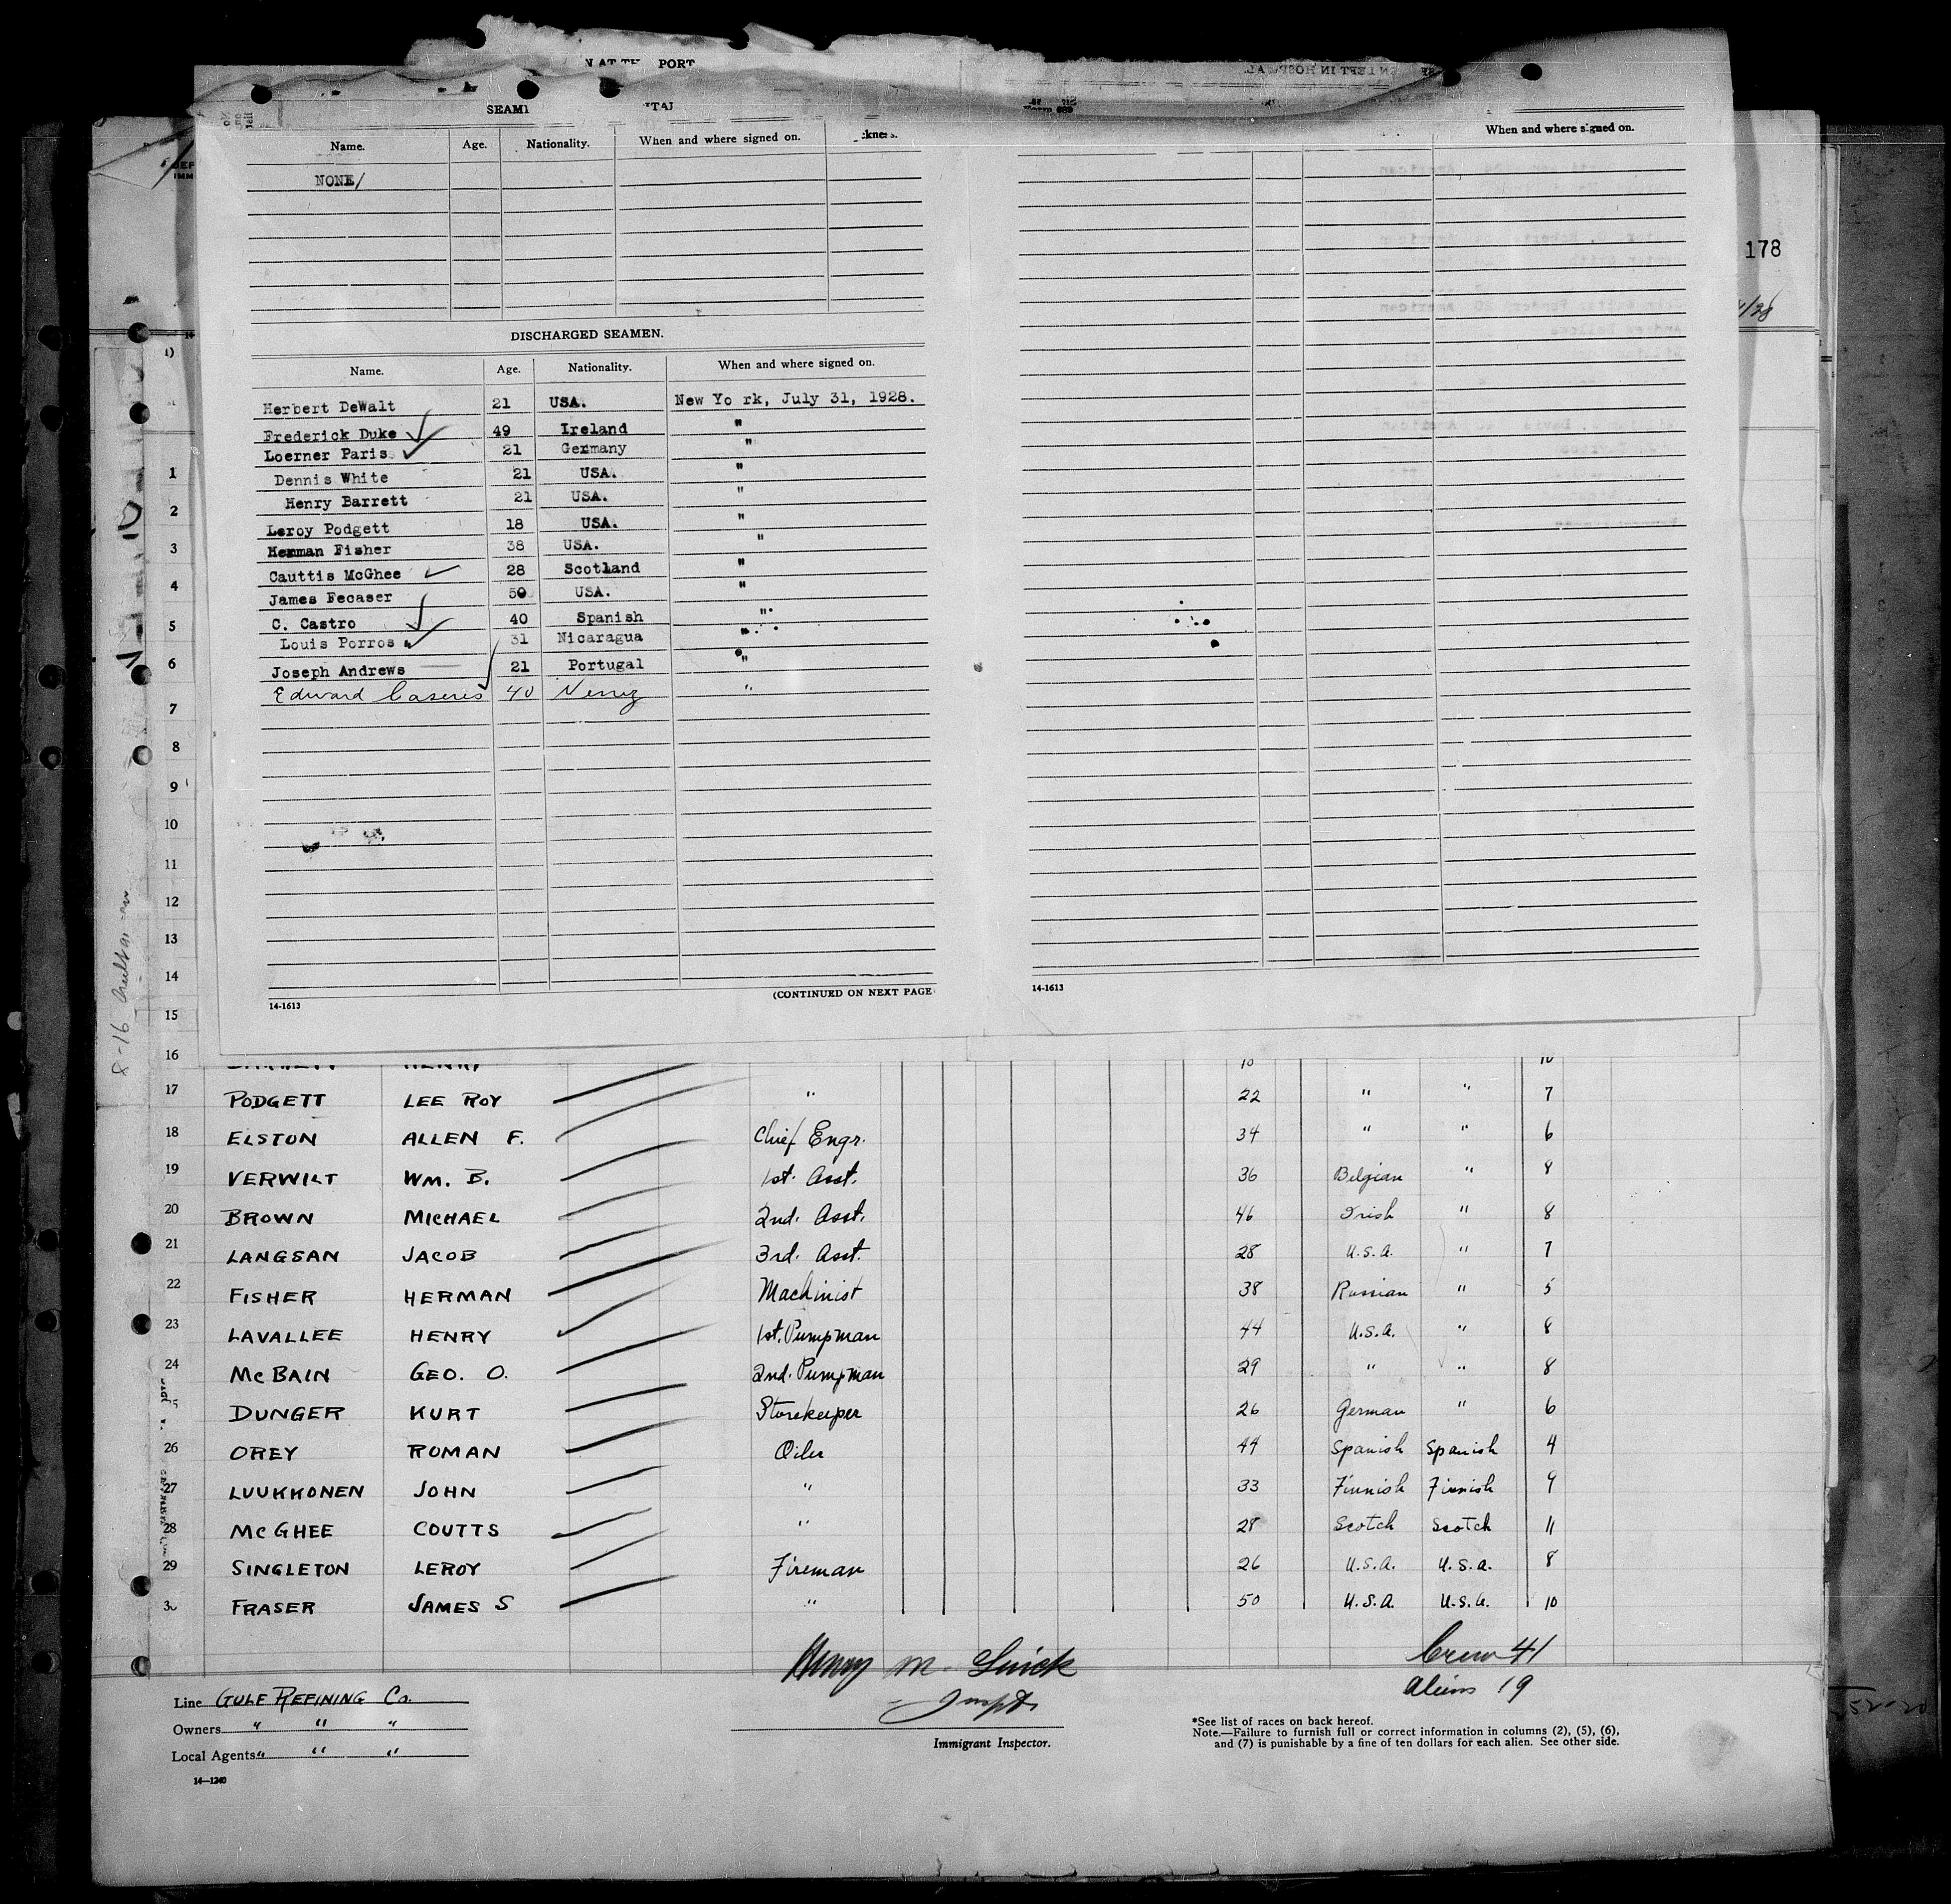 N AT THE PORT
SEAM
Name. Age. Nationality. When and where signed on.
When and where signed on.
NONE/
178
DISCHARGED SEAMEN.
Name. Age. Nationality. When and where signed on.
Herbert DeWalt 21 USA. New Yo rk, July 31, 1928.
Frederick Duke 49 Ireland "
Loerner Paris 21 Germany "
Dennis White 21 USA. "
Henry Barrett 21 USA. "
Leroy Podgett 18 USA. "
Herman Fisher 38 USA. "
Cauttis McGhee 28 Scotland "
James Fecaser 50 USA. "
C. Castro 40 Spanish "
Louis Porros 31 Nicaragua "
Joseph Andrews 21 Portugal "
Edward Caseres 40 "
1
2
3
4
5
6
7
8
9
10
11
12
13
14
15
16
14-1613 (CONTINUED ON NEXT PAGE
14-1613
8-16
17 PODGETT LEE ROY " 22 " " 7
18 ELSTON ALLEN F. Chief Engr. 34 " " 6
19 VERWILT WM. B. 1st. Asst. 36 Belgian " 8
20 BROWN MICHAEL 2nd. Asst. 46 Irish " 8
21 LANGSAN JACOB 3rd. Asst. 28 U.S.A. " 7
22 FISHER HERMAN Machinist 38 Russian " 5
23 LAVALLEE HENRY 1st. Pumpman 44 U.S.A. " 8
24 McBAIN GEO. O. 2nd. Pumpman 29 " " 8
DUNGER KURT Storekeeper 26 German " 6
26 OREY ROMAN Oiler 44 Spanish Spanish 4
27 LUUKKONEN JOHN " 33 Finnish Finnish 9
28 McGHEE COUTTS " 28 Scotch Scotch 11
29 SINGLETON LEROY Fireman 26 U.S.A. U.S.A. 8
FRASER JAMES S " 50 U.S.A. U.S.A. 10
Crew 41
Aliens 19
Henry M.
Inspt.
Immigrant Inspector.
Line GULF REFINING Co.
Owners " " "
Local Agents " " "
14—1240
*See list of races on back hereof.
Note.—Failure to furnish full or correct information in columns (2), (5), (6),
and (7) is punishable by a fine of ten dollars for each alien. See other side.